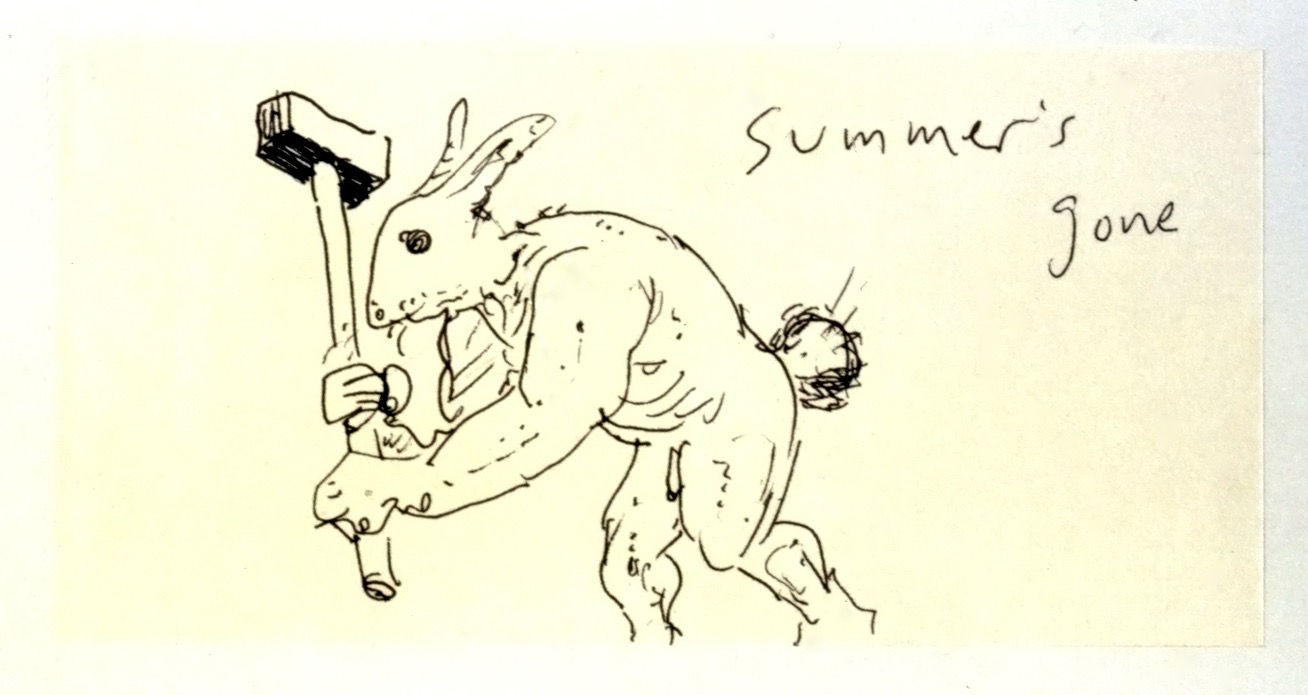 Summer's
gone